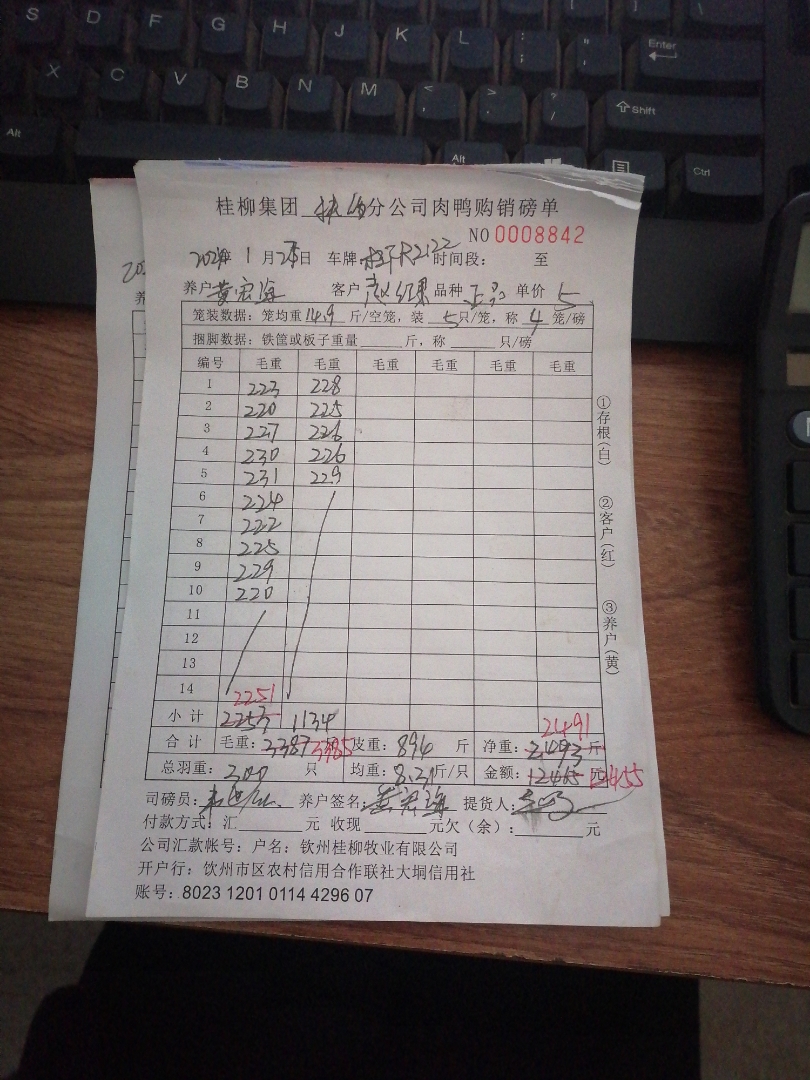 S D F G H J K L : ; " ' Enter
X C V B N M < , > . ? / Shift
Alt Alt Ctrl
桂柳集团 分公司肉鸭购销磅单
NO 0008842
2024年 1 月 日 车牌 R2122 时间段: 至
养户 黄宏海 客户 赵红果 品种 正品 单价 5
笼装数据: 笼均重 14.9 斤/空笼, 装 5 只/笼, 称 4 笼/磅
捆脚数据: 铁筐或板子重量 斤, 称 只/磅
编号 毛重 毛重 毛重 毛重 毛重 毛重
1 223 228
2 220 225
3 227 226
4 230 226
5 231 229
6 224
7 222
8 225
9 229
10 220
11
12
13
14
2251 2491
小计 2253 1134
合计 毛重: 3387 3385 皮重: 894 斤 净重: 2493 斤
总羽重: 300 只 均重: 8.31 斤/只 金额: 12465 元 12455
司磅员: 养户签名: 黄宏海 提货人:
付款方式: 汇 元 收现 元欠(余): 元
公司汇款帐号: 户名: 钦州桂柳牧业有限公司
开户行: 钦州市区农村信用合作联社大垌信用社
账号: 8023 1201 0114 4296 07
①存根(白)
②客户(红)
③养户(黄)